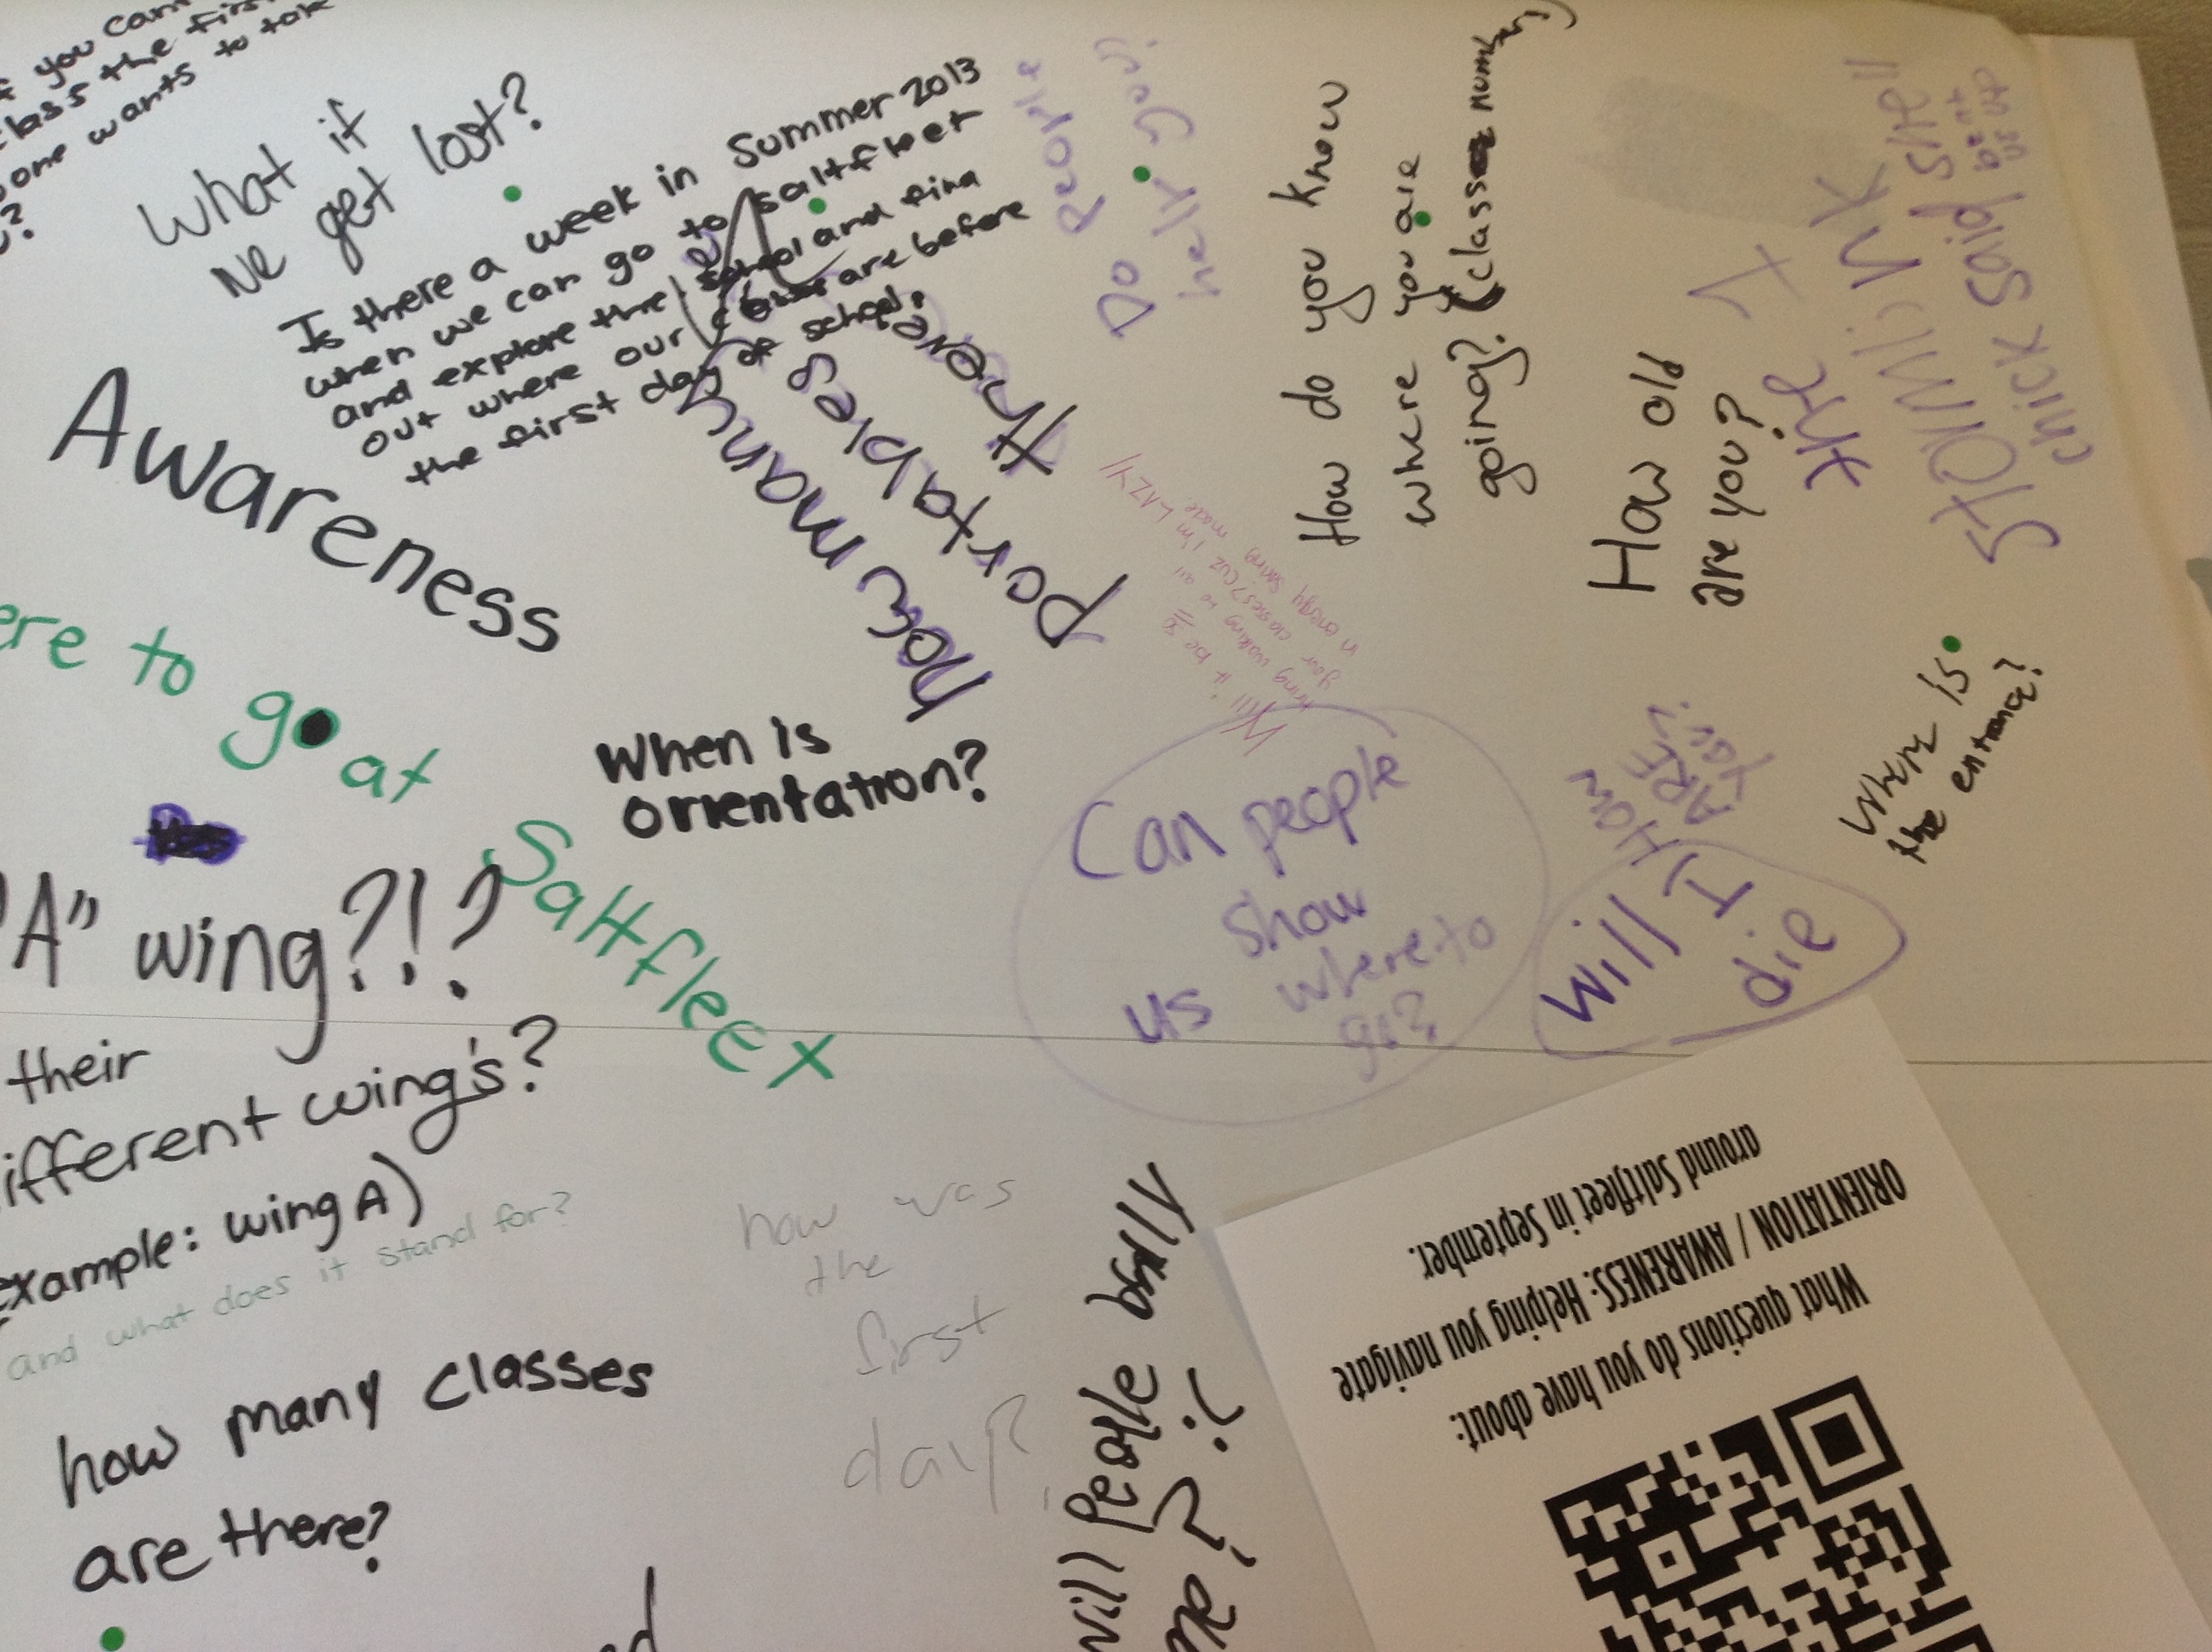 you can
class the fir
one wants to
?
What if
we get lost?
Is there a week in Summer 2013
when we can go to saltfleet
and explore the school and find
out where our classes are before
the first day of school.
Awareness
ere to go at
Saltfleet
how many
portables
there
Do people
help you?
How do you know
where you are
going? (classes numbers)
How old
are you?
the
STOMIINK
chick said
shell
Will it be
so
walking to all
your classes? cuz I'm LAZY!!
energy saving mode
When is
orientation?
"A" wing?!?
their
ifferent wing's?
example: wing A)
and what does it stand for?
Can people
show
us where to
go?
HOW
ARE
you?
Will I
die
Where is
the entrance?
how was
the
first
day?
how many classes
are there?
will people
What questions do you have about:
ORIENTATION / AWARENESS: Helping you navigate
around Saltfleet in September.